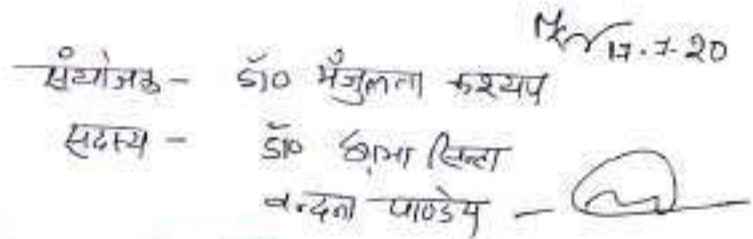 17.7.20
संयोजक - डॉ० मँजुलता कश्यप
सदस्य - डॉ० सिन्हा
वन्दना पाण्डेय -